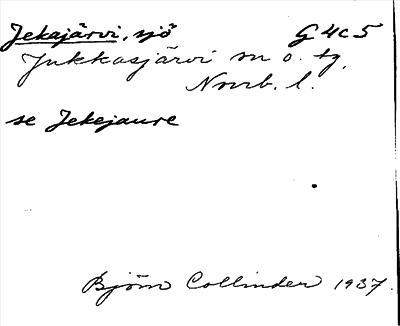 Jekajärvi, sjö G 4c5
Jukkasjärvi sn o. tg.
Norrb. l.
se Jekejaure
Björn Collinder 1937.